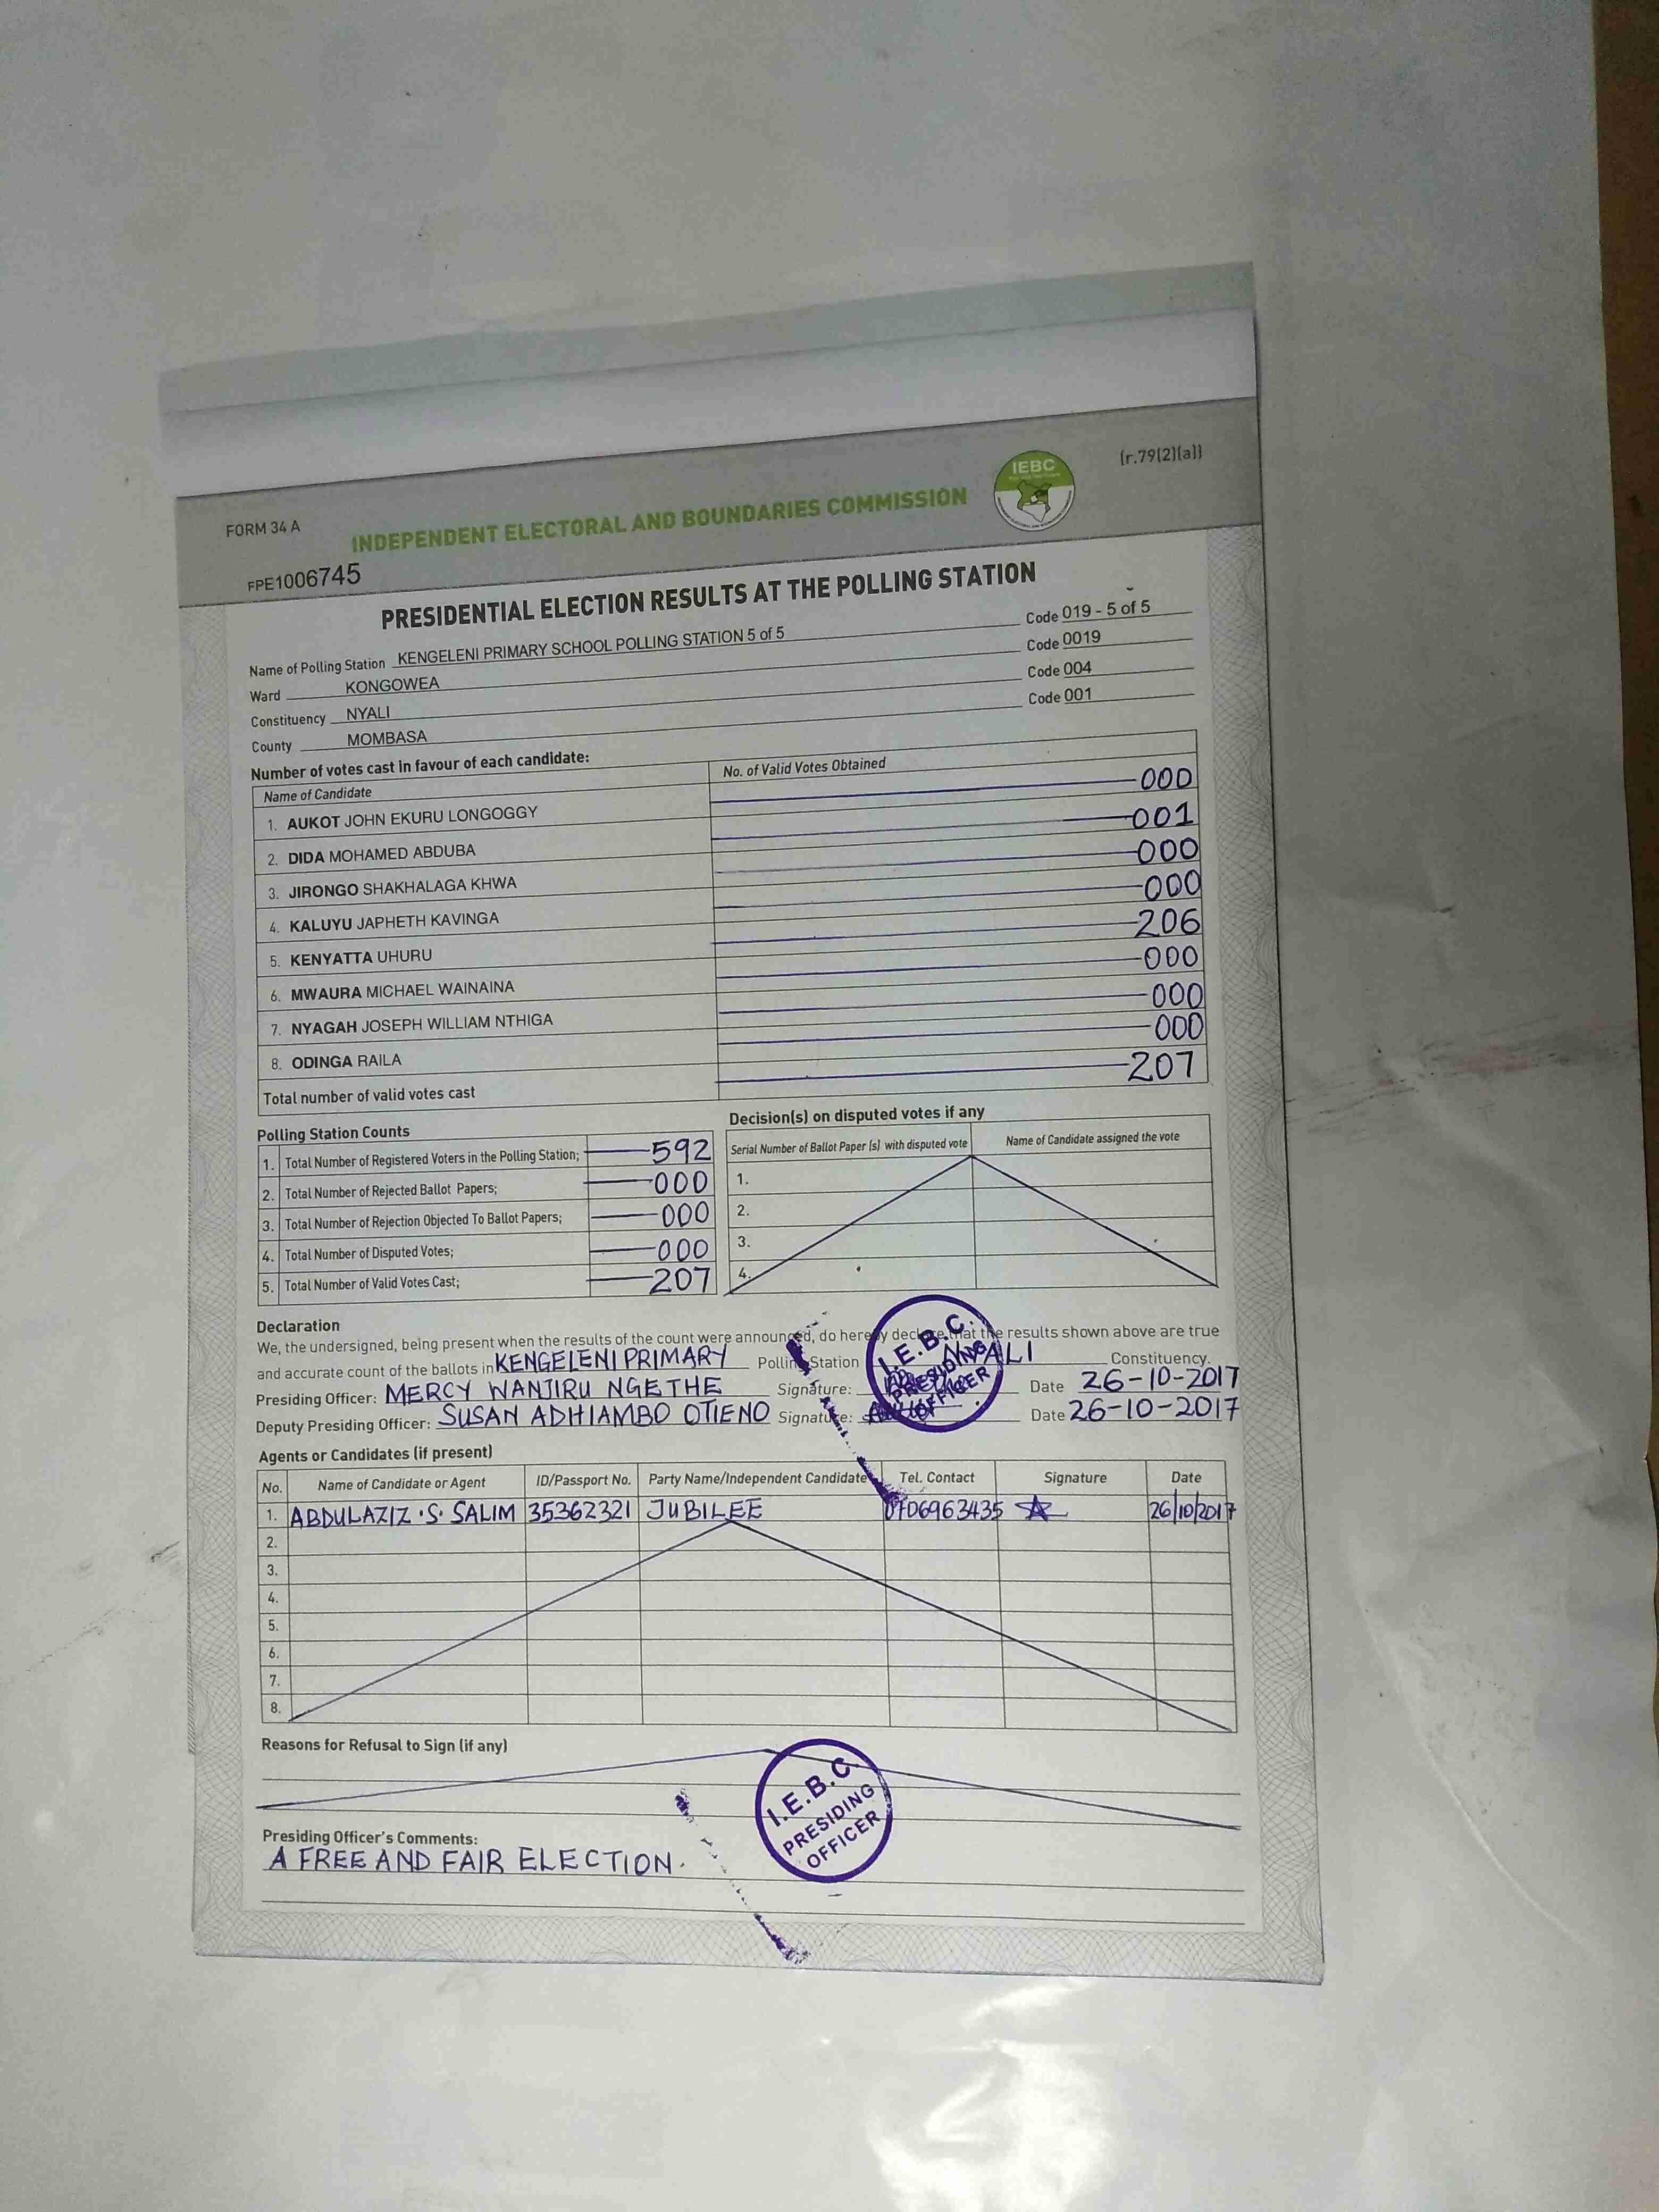 FORM 34 A
INDEPENDENT ELECTORAL AND BOUNDARIES COMMISSION
IEBC
(r.79(2)(a))
FPE1006745
PRESIDENTIAL ELECTION RESULTS AT THE POLLING STATION
Name of Polling Station KENGELENI PRIMARY SCHOOL POLLING STATION 5 of 5 Code 019 - 5 of 5
Ward KONGOWEA Code 0019
Constituency NYALI Code 004
County MOMBASA Code 001
Number of votes cast in favour of each candidate:
Name of Candidate No. of Valid Votes Obtained
1. AUKOT JOHN EKURU LONGOGGY 000
2. DIDA MOHAMED ABDUBA 001
3. JIRONGO SHAKHALAGA KHWA 000
4. KALUYU JAPHETH KAVINGA 000
5. KENYATTA UHURU 206
6. MWAURA MICHAEL WAINAINA 000
7. NYAGAH JOSEPH WILLIAM NTHIGA 000
8. ODINGA RAILA 000
Total number of valid votes cast 207
Polling Station Counts
1. Total Number of Registered Voters in the Polling Station; 592
2. Total Number of Rejected Ballot Papers; 000
3. Total Number of Rejection Objected To Ballot Papers; 000
4. Total Number of Disputed Votes; 000
5. Total Number of Valid Votes Cast; 207
Decision(s) on disputed votes if any
Serial Number of Ballot Paper (s) with disputed vote Name of Candidate assigned the vote
1.
2.
3.
4.
Declaration
We, the undersigned, being present when the results of the count were announced, do hereby declare that the results shown above are true
and accurate count of the ballots in KENGELENI PRIMARY Polling Station NYALI Constituency.
Presiding Officer: MERCY WANJIRU NGETHE Signature: Date 26-10-2017
Deputy Presiding Officer: SUSAN ADHIAMBO OTIENO Signature: Date 26-10-2017
I.E.B.C.
PRESIDING
OFFICER
Agents or Candidates (if present)
No. Name of Candidate or Agent ID/Passport No. Party Name/Independent Candidate Tel. Contact Signature Date
1. ABDULAZIZ .S. SALIM 35362321 JUBILEE 0706963435 26/10/2017
2.
3.
4.
5.
6.
7.
8.
Reasons for Refusal to Sign (if any)
I.E.B.C.
PRESIDING
OFFICER
Presiding Officer's Comments:
A FREE AND FAIR ELECTION.